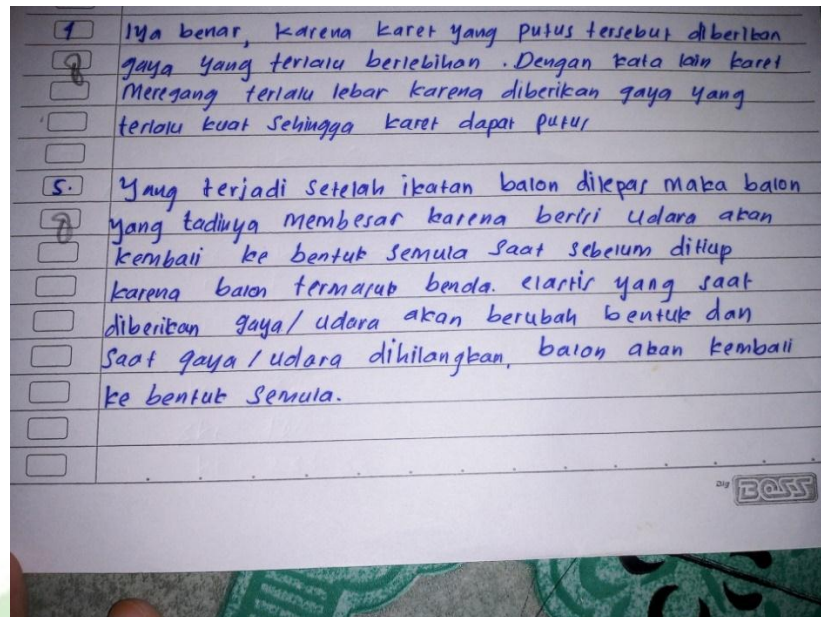 1 Iya benar, karena karet yang putus tersebut diberikan
8 gaya yang terlalu berlebihan. Dengan kata lain karet
Meregang terlalu lebar karena diberikan gaya yang
terlalu kuat sehingga karet dapat putus
5. Yang terjadi setelah ikatan balon dilepas maka balon
8 yang tadinya membesar karena berisi udara akan
kembali ke bentuk semula saat sebelum ditiup
karena balon termasuk benda. elastis yang saat
diberikan gaya/udara akan berubah bentuk dan
saat gaya/udara dihilangkan, balon akan kembali
ke bentuk semula.
Big BOSS